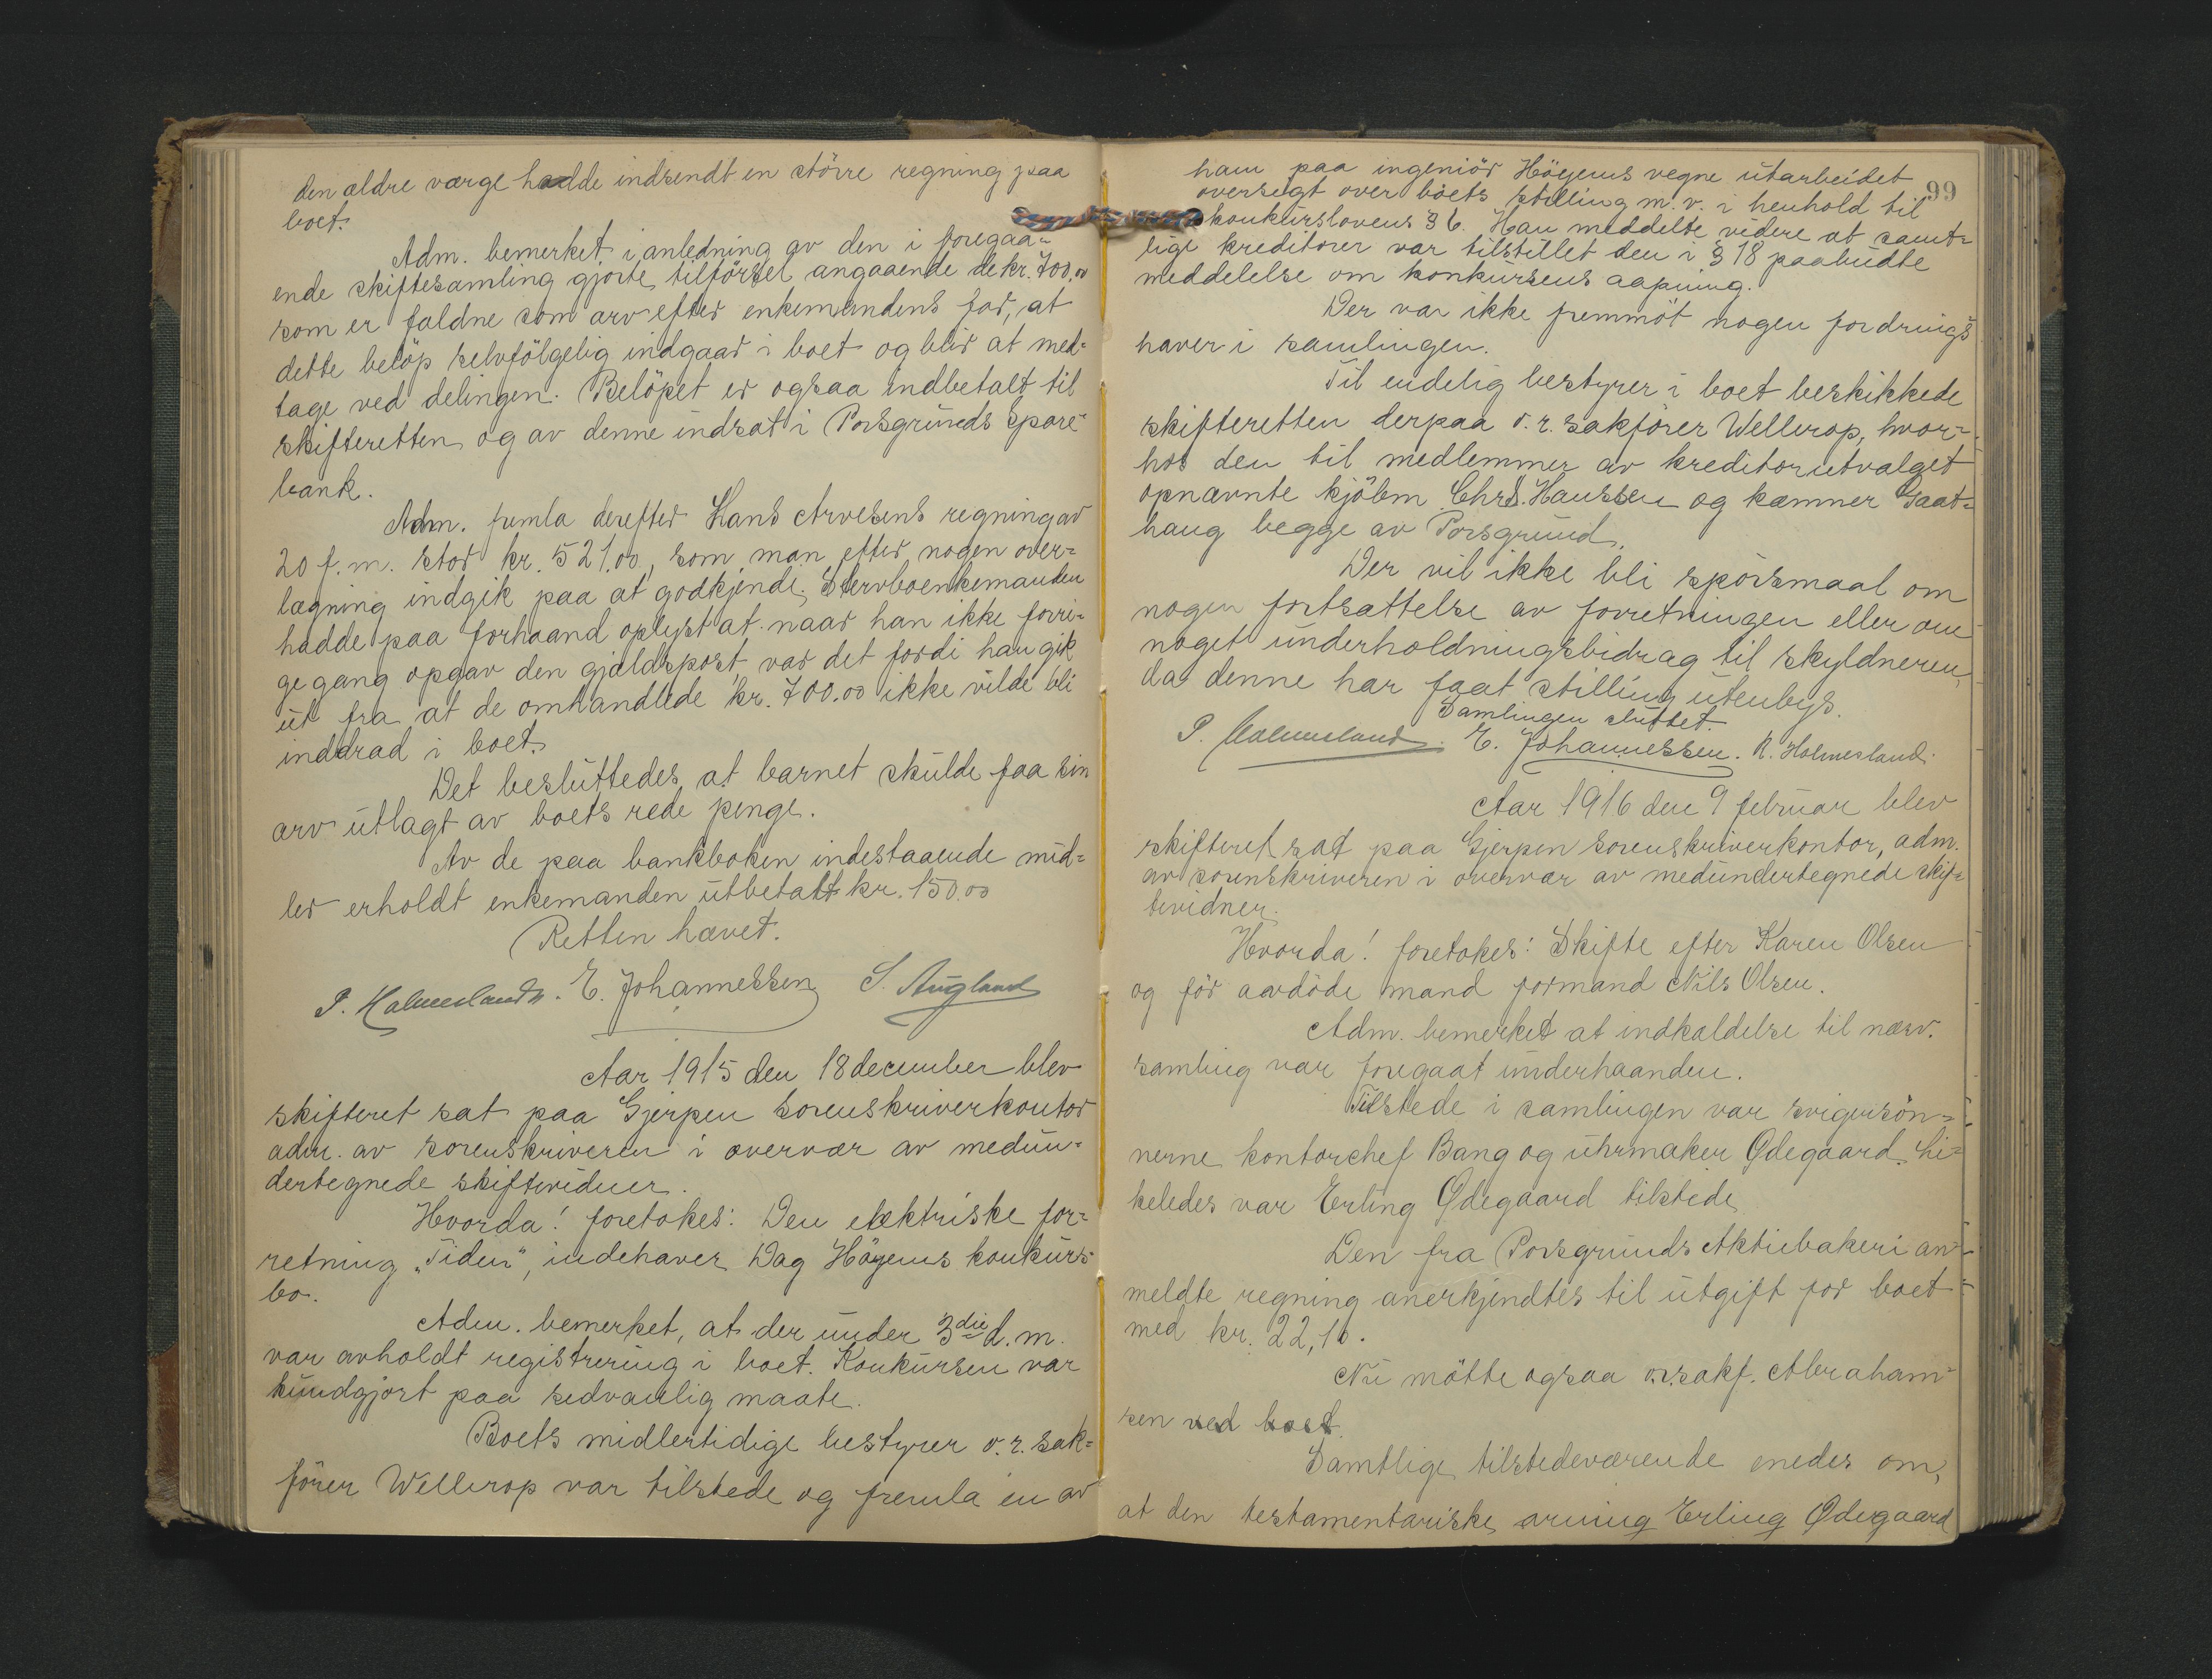 den ældre værge hadde indsendt en större regning paa
boet.
Adm. bemerket i anledning av den i foregaa-
ende skiftesamling gjorte tilförsel angaaende de kr. 700.00
som er faldne som arv efter enkemandens far, at
dette belöp selvfölgelig indgaar i boet og blir at med-
tage ved delingen. Belöpet er ogsaa indbetalt til
skifteretten og av denne indsat i Porsgrunds Spare-
bank.
Adm. fremla derefter Hans Arvesens regning av
20 f. m. stor kr. 521.00, som man efter nogen over-
lægning indgik paa at godkjende. Stervboenkemanden
hadde paa forhaand oplyst at naar han ikke forri-
ge gang opgav den gjældspost, var det fordi han gik
ut fra at de omhandlede kr. 700.00 ikke vilde bli
inddrad i boet.
Det besluttedes at barnet skulde faa sin
arv utlagt av boets rede penge.
Av de paa bankboken indestaaende mid-
ler erholdt enkemanden utbetalt kr. 150.00
Retten hævet.
P. Holmesland. E. Johannessen S. Augland
Aar 1915 den 18 december blev
skifteret sat paa Gjerpen Sorenskriverkontor
adm. av sorenskriveren i overvær av medun-
dertegnede skiftevidner.
Hvorda! foretokes: Den elektriske for-
retning "Tiden", indehaver Dag Höyems konkurs-
bo.
Adm. bemerket, at der under 3die d. m.
var avholdt registrering i boet. Konkursen var
kundgjort paa sedvanlig maate.
Boets midlertidige bestyrer o. r. sak-
förer Wellerop var tilstede og fremla en av
99
ham paa ingeniör Höyems vegne utarbeidet
oversigt over boets stilling m. v. i henhold til
konkurslovens § 6. Han meddelte videre at samt-
lige kreditorer var tilstillet den i § 18 paabudte
meddelelse om konkursens aapning.
Der var ikke fremmöt nogen fordrings
haver i samlingen.
Til endelig bestyrer i boet beskikkede
skifteretten derpaa o. r. sakförer Wellerop, hvor-
hos den til medlemmer av kreditorutvalget
opnævnte kjöbm. Chrs. Hanssen og kæmner Gaat-
haug begge av Porsgrund.
Der vil ikke bli spörsmaal om
nogen fortsættelse av forretningen eller om
noget underholdningsbidrag til skyldneren,
da denne har faat stilling utenbys.
Samlingen sluttet.
P. Holmesland. E. Johannessen. R. Holmesland.
Aar 1916 den 9 februar blev
skifteret sat paa Gjerpen Sorenskriverkontor, adm.
av sorenskriveren i overvær av medundertegnede skif-
tevidner.
Hvorda! foretokes: Skifte efter Karen Olsen
og för avdöde mand formand Nils Olsen.
Adm. bemerket at indkaldelse til nærv.
samling var foregaat underhaanden.
Tilstede i samlingen var svigersön-
nerne kontorchef Bang og uhrmaker Ødegaard. Li-
keledes var Erling Ødegaard tilstede
Den fra Porsgrunds Aktiebakeri an-
meldte regning anerkjendtes til utgift for boet
med kr. 22,10.
Nu mötte ogsaa o.r.sakf. Abraham-
sen ved boet.
Samtlige tilstedeværende enedes om,
at den testamentariske arving Erling Ødegaard